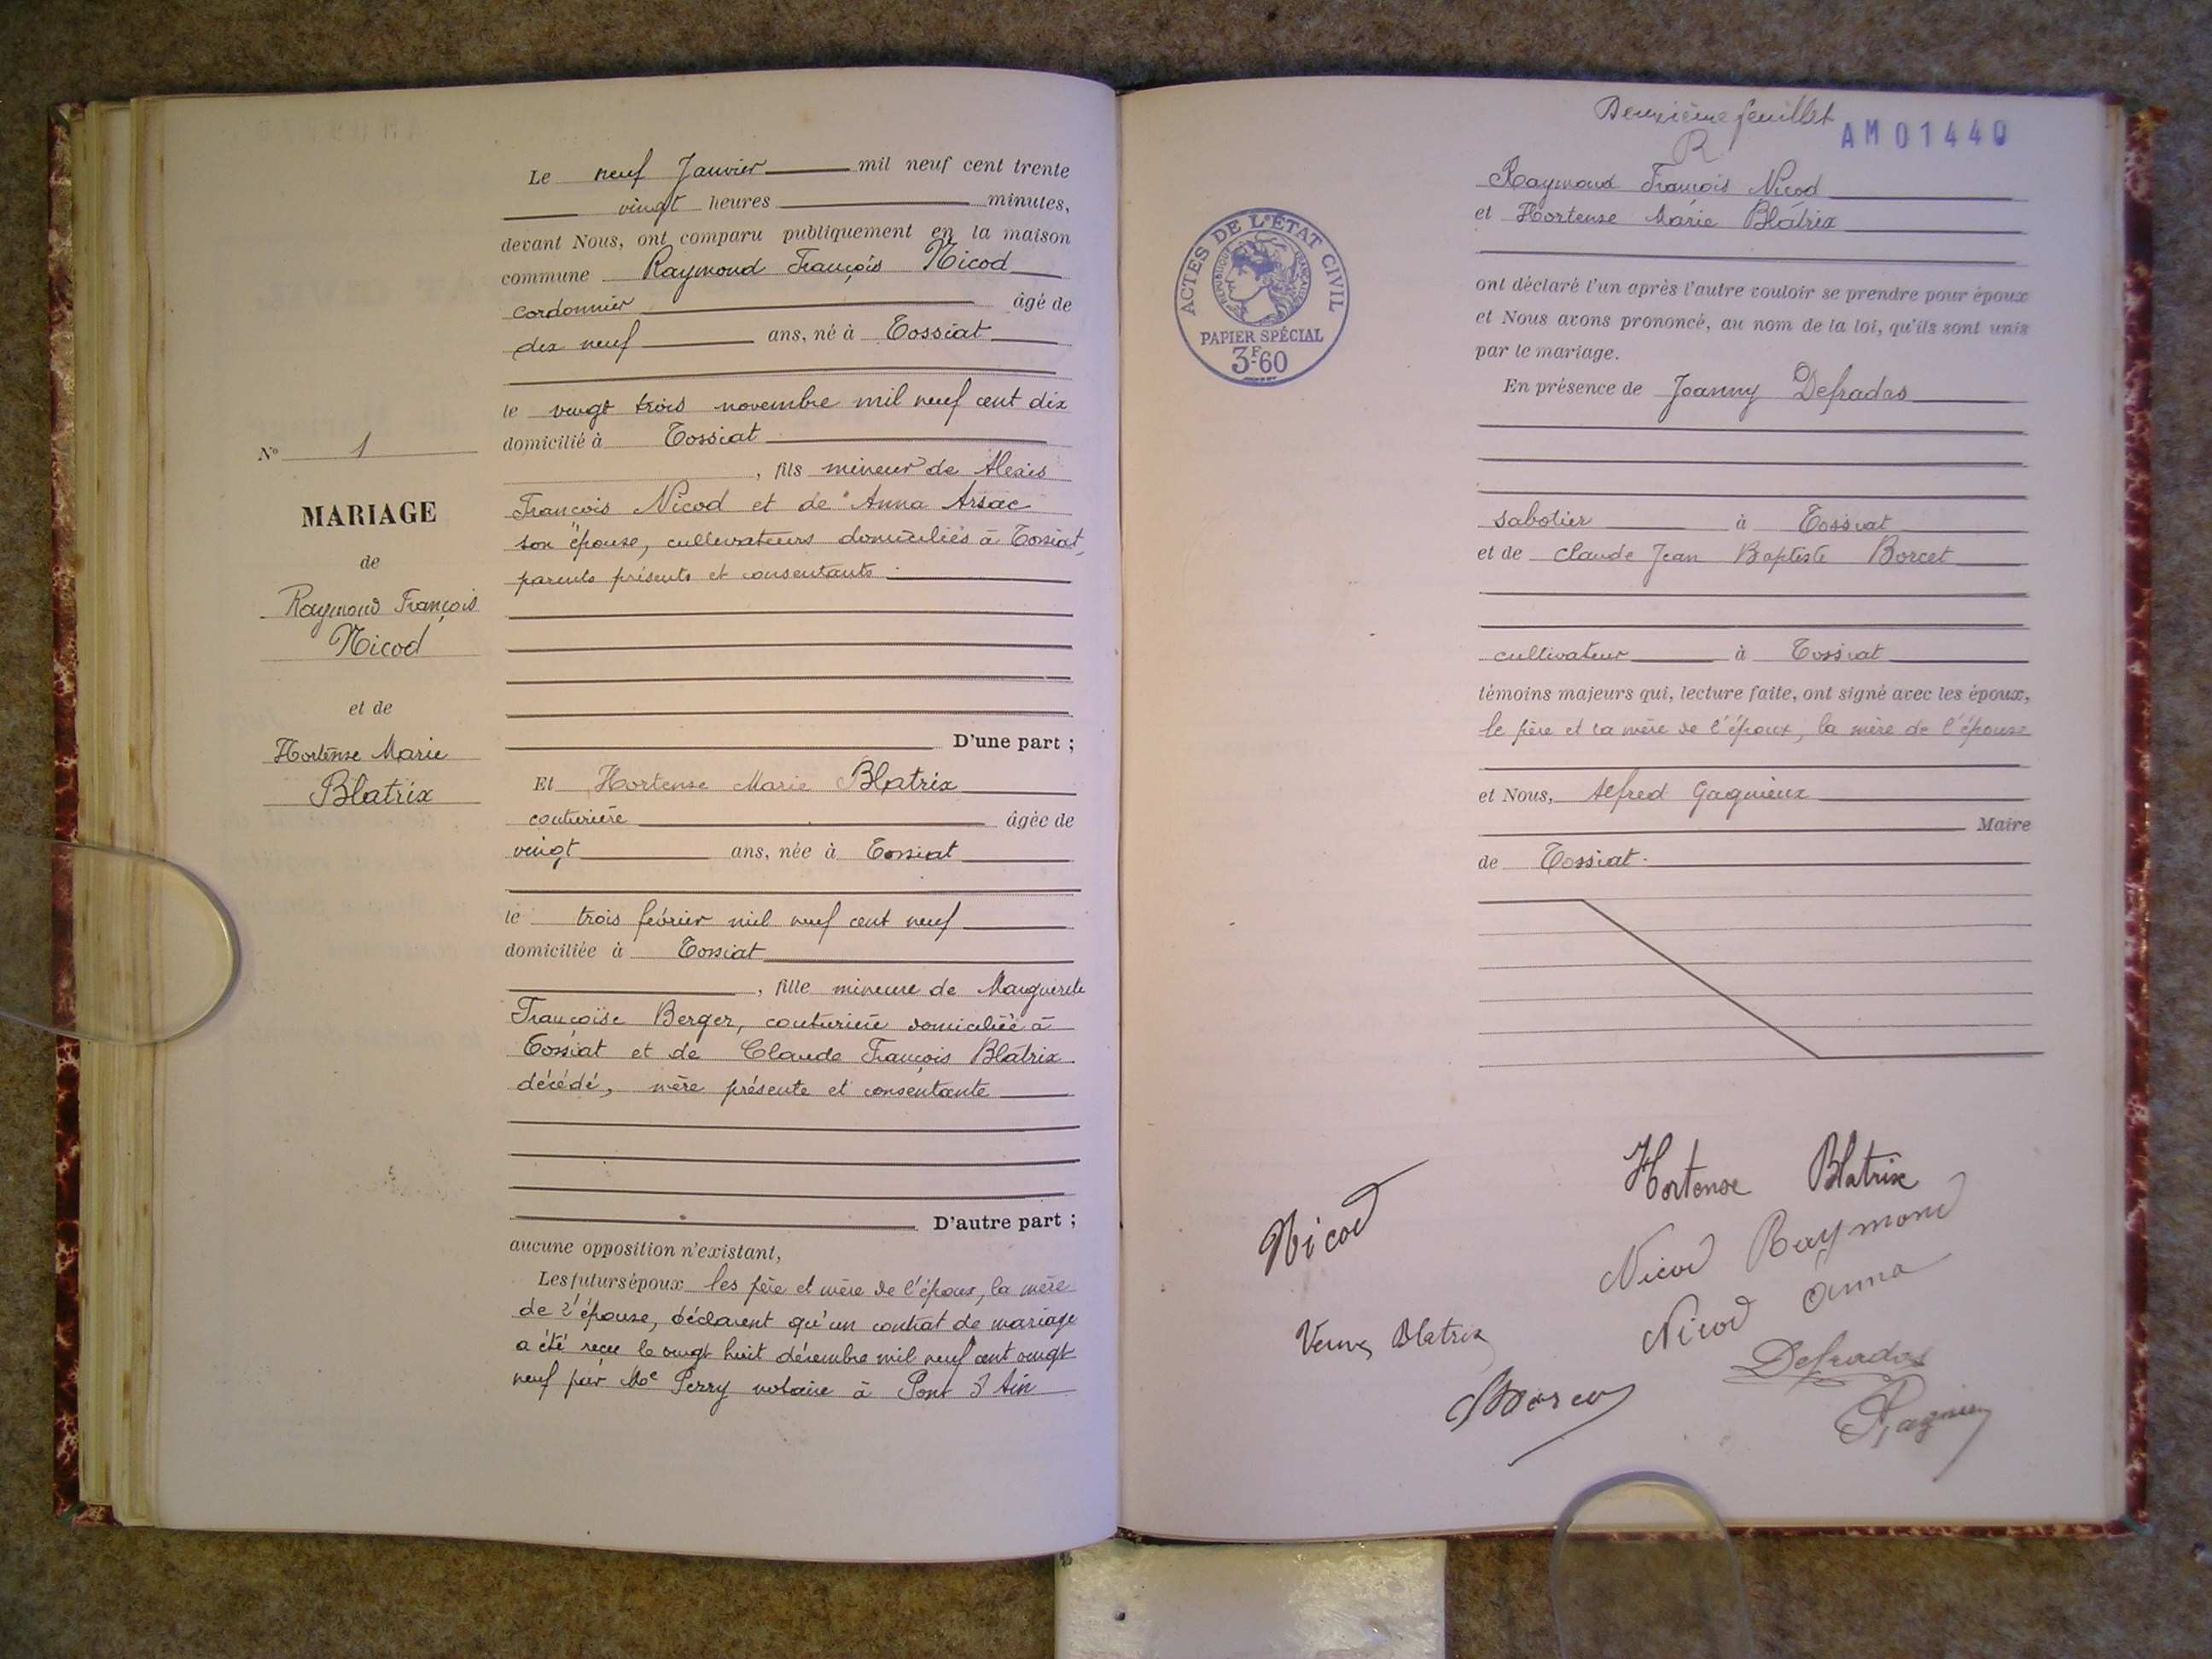 Le neuf Janvier mil neuf cent trente
vingt heures minutes,
devant Nous, ont comparu publiquement en la maison
commune Raymond François Nicod
cordonnier âgé de
dix neuf ans, né à Tossiat
le vingt trois novembre mil neuf cent dix
domicilié à Tossiat
, fils mineur de Alexis
François Nicod et de Anna Arsac
son épouse, cultivateurs domiciliés à Tossiat,
parents présents et consentants
D'une part ;
Et Hortense Marie Blatrix
couturière âgée de
vingt ans, née à Tossiat
le trois février mil neuf cent neuf
domiciliée à Tossiat
, fille mineure de Marguerite
Françoise Berger, couturière domiciliée à
Tossiat et de Claude François Blatrix
décédé, mère présente et consentante
D'autre part ;
aucune opposition n'existant,
Les futurs époux les père et mère de l'époux, la mère
de l'épouse, déclarent qu'un contrat de mariage
a été reçu le vingt huit décembre mil neuf cent vingt
neuf par Me Perry notaire à Pont d'Ain
N° 1
MARIAGE
de
Raymond François
Nicod
et de
Hortense Marie
Blatrix
Deuxième feuillet
R
AM 01440
ACTES DE L'ÉTAT CIVIL
RÉPUBLIQUE FRANÇAISE
PAPIER SPÉCIAL
3F.60
Raymond François Nicod
et Hortense Marie Blatrix
ont déclaré l'un après l'autre vouloir se prendre pour époux
et Nous avons prononcé, au nom de la loi, qu'ils sont unis
par le mariage.
En présence de Joanny Defradas
sabotier à Tossiat
et de Claude Jean Baptiste Borcet
cultivateur à Tossiat
témoins majeurs qui, lecture faite, ont signé avec les époux,
le père et la mère de l'époux, la mère de l'épouse
et Nous, Alfred Gagnieux
Maire
de Tossiat.
Hortense Blatrix
Nicod
Nicod Raymond
Nicod Anna
Veuve Blatrix
Defradas